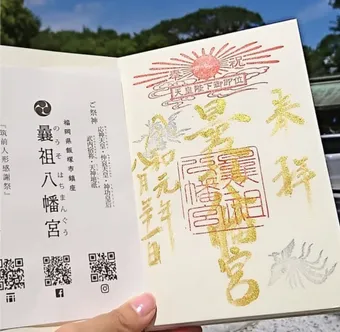 奉祝
天皇陛下御即位
来拝
曩祖八幡宮
曩祖八幡宮
令和元年
ご祭神
応神天皇・仲哀天皇・神功皇后
武内宿祢・天神地祇
福岡県飯塚市鎮座
曩祖八幡宮
のうそはちまんぐう
『筑前人形感謝祭』